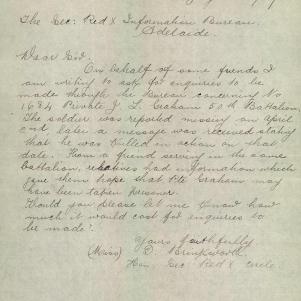 The Sec: Red X Information Bureau.
Adelaide.
Dear Sir.
On behalf of some friends I
am writing to ask for enquiries to be
made through the Bureau concerning No
1684 Private J. L. Graham 50th Battalion.
The soldier was reported missing on April
later a message was received stating
that he was killed in action on that
date. From a friend serving in the same
battalion, relatives had information which
gave them hope that Pte Graham may
have been taken prisoner.
Would you please let me know how
much it would cost for enquiries to
be made?
Yours faithfully
(Miss) D. Brinkworth
Hon. Sec: Red X circle